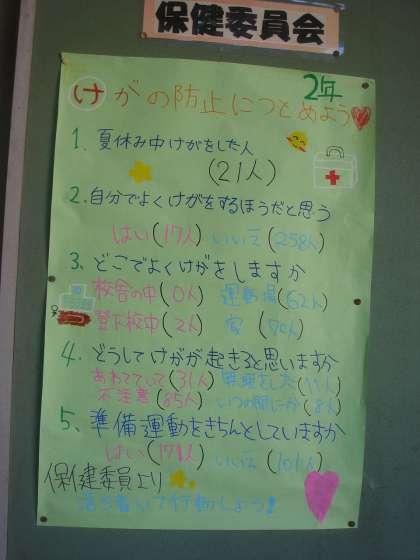 保健委員会
2年
けがの防止につとめよう
1. 夏休み中けがをした人
(21人)
2. 自分でよくけがをするほうだと思う
はい(17人) いいえ(258人)
3. どこでよくけがをしますか
校舎の中(0人) 運動場(62人)
登下校中(2人) 家(70人)
4. どうしてけがが起きると思いますか
あわてていて(31人) (11人)
不注意(85人) いつの間にか(8人)
5. 準備運動をきちんとしていますか
はい(171人) いいえ(101人)
保健委員より
落ち着いて行動しよう!